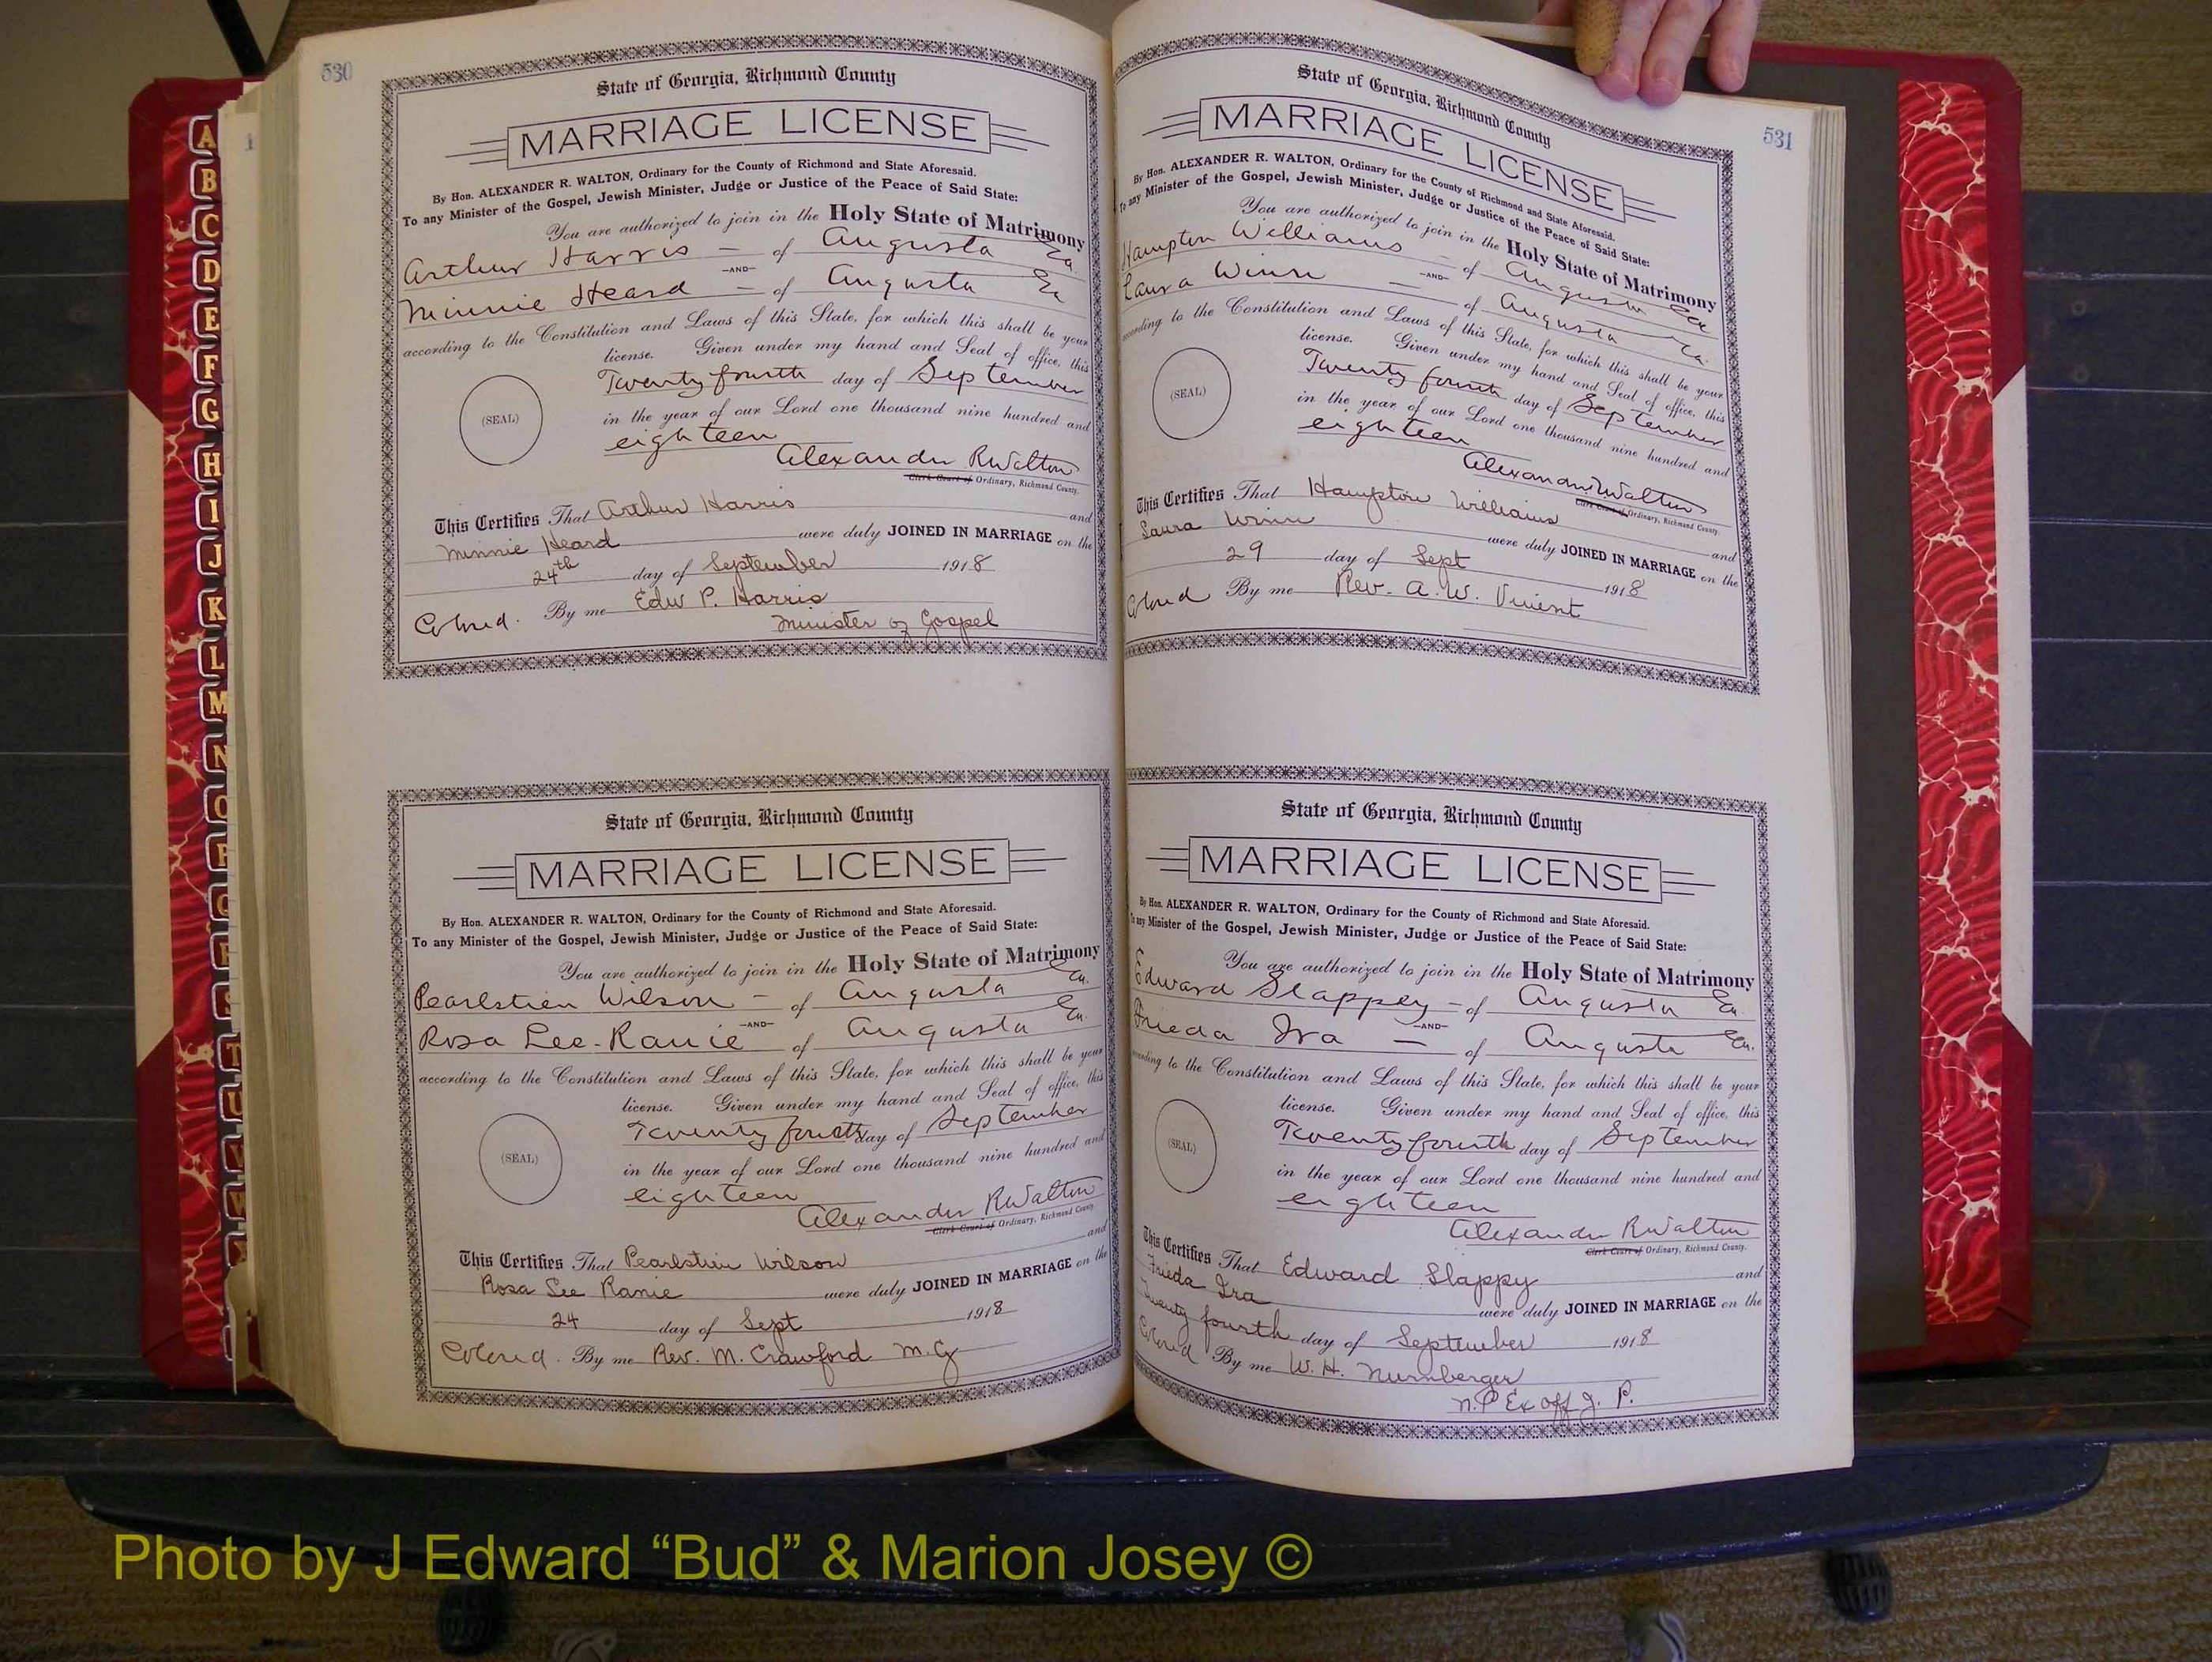 530
State of Georgia, Richmond County
MARRIAGE LICENSE
By Hon. ALEXANDER R. WALTON, Ordinary for the County of Richmond and State Aforesaid.
To any Minister of the Gospel, Jewish Minister, Judge or Justice of the Peace of Said State:
You are authorized to join in the Holy State of Matrimony
Arthur Harris — of Augusta Ga
—AND—
Minnie Heard — of Augusta Ga
according to the Constitution and Laws of this State, for which this shall be your
license. Given under my hand and Seal of office, this
Twenty fourth day of September
(SEAL)
in the year of our Lord one thousand nine hundred and
eighteen
Alexander R Walton
Clerk Court of Ordinary, Richmond County.
This Certifies That Arthur Harris and
Minnie Heard were duly JOINED IN MARRIAGE on the
24th day of September 1918
Colored. By me Edw P. Harris
Minister of Gospel
State of Georgia, Richmond County
MARRIAGE LICENSE
By Hon. ALEXANDER R. WALTON, Ordinary for the County of Richmond and State Aforesaid.
To any Minister of the Gospel, Jewish Minister, Judge or Justice of the Peace of Said State:
You are authorized to join in the Holy State of Matrimony
Pearlstien Wilson — of Augusta Ga.
—AND—
Rosa Lee Ranie of Augusta Ga.
according to the Constitution and Laws of this State, for which this shall be your
license. Given under my hand and Seal of office, this
Twenty fourth day of September
(SEAL)
in the year of our Lord one thousand nine hundred and
eighteen
Alexander R Walton
Clerk Court of Ordinary, Richmond County.
This Certifies That Pearlstien Wilson and
Rosa Lee Ranie were duly JOINED IN MARRIAGE on the
24 day of Sept 1918
Colored. By me Rev. M. Crawford M.G
531
State of Georgia, Richmond County
MARRIAGE LICENSE
By Hon. ALEXANDER R. WALTON, Ordinary for the County of Richmond and State Aforesaid.
To any Minister of the Gospel, Jewish Minister, Judge or Justice of the Peace of Said State:
You are authorized to join in the Holy State of Matrimony
Hampton Williams — of Augusta Ga
—AND—
Laura Winn — of Augusta Ga.
according to the Constitution and Laws of this State, for which this shall be your
license. Given under my hand and Seal of office, this
Twenty fourth day of September
(SEAL)
in the year of our Lord one thousand nine hundred and
eighteen
Alexander R Walton
Clerk Court of Ordinary, Richmond County.
This Certifies That Hampton Williams and
Laura Winn were duly JOINED IN MARRIAGE on the
29 day of Sept 1918
Colored By me Rev. A. W. Vinient
State of Georgia, Richmond County
MARRIAGE LICENSE
By Hon. ALEXANDER R. WALTON, Ordinary for the County of Richmond and State Aforesaid.
To any Minister of the Gospel, Jewish Minister, Judge or Justice of the Peace of Said State:
You are authorized to join in the Holy State of Matrimony
Edward Slappey — of Augusta Ga.
—AND—
Frieda Ira — of Augusta Ga.
according to the Constitution and Laws of this State, for which this shall be your
license. Given under my hand and Seal of office, this
Twenty fourth day of September
(SEAL)
in the year of our Lord one thousand nine hundred and
eighteen
Alexander R Walton
Clerk Court of Ordinary, Richmond County.
This Certifies That Edward Slappy and
Frieda Ira were duly JOINED IN MARRIAGE on the
Twenty fourth day of September 1918
Colored By me W. H. Nurnberger
N.P Ex off J. P.
A
B
C
D
E
F
G
H
I
J
K
L
M
N
O
P
Q
R
S
T
U
V
W
X
Photo by J Edward “Bud” & Marion Josey ©